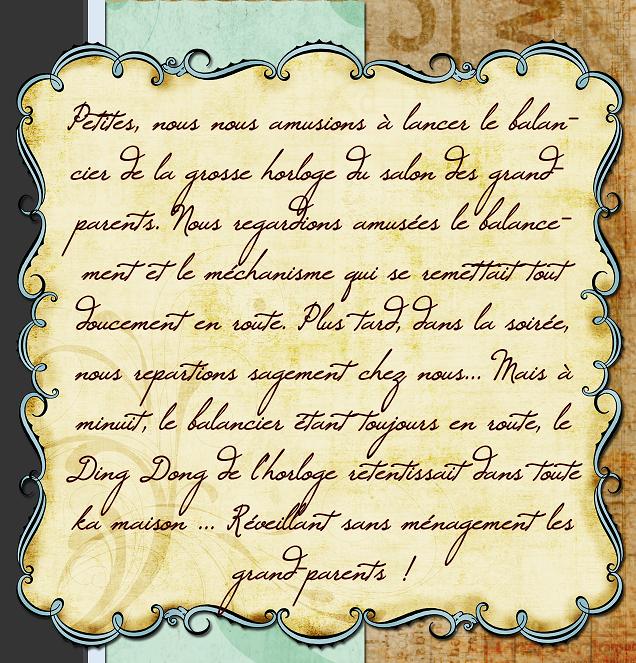 Petites, nous nous amusions à lancer le balan-
cier de la grosse horloge du salon des grand-
parents. Nous regardions amusées le balance-
ment et le méchanisme qui se remettait tout
doucement en route. Plus tard, dans la soirée,
nous repartions sagement chez nous... Mais à
minuit, le balancier étant toujours en route, le
Ding Dong de l'horloge retentissait dans toute
ka maison ... Réveillant sans ménagement les
grand-parents !